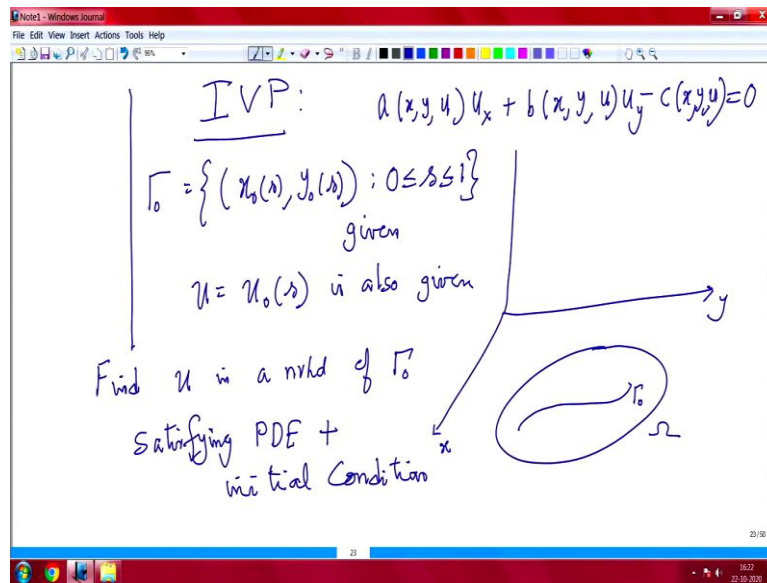 Note1 - Windows Journal
File Edit View Insert Actions Tools Help
96%
IVP: a(x,y,u)u_x + b(x,y,u)u_y - c(x,y,u)=0
Γ₀ = {(x₀(s), y₀(s)) ; 0≤s≤1}
given
u = u₀(s) is also given
y
Find u in a nvhd of Γ₀
Γ₀
Ω
Satisfying PDE +
x
initial Condition
23/50
23
16:22
22-10-2020